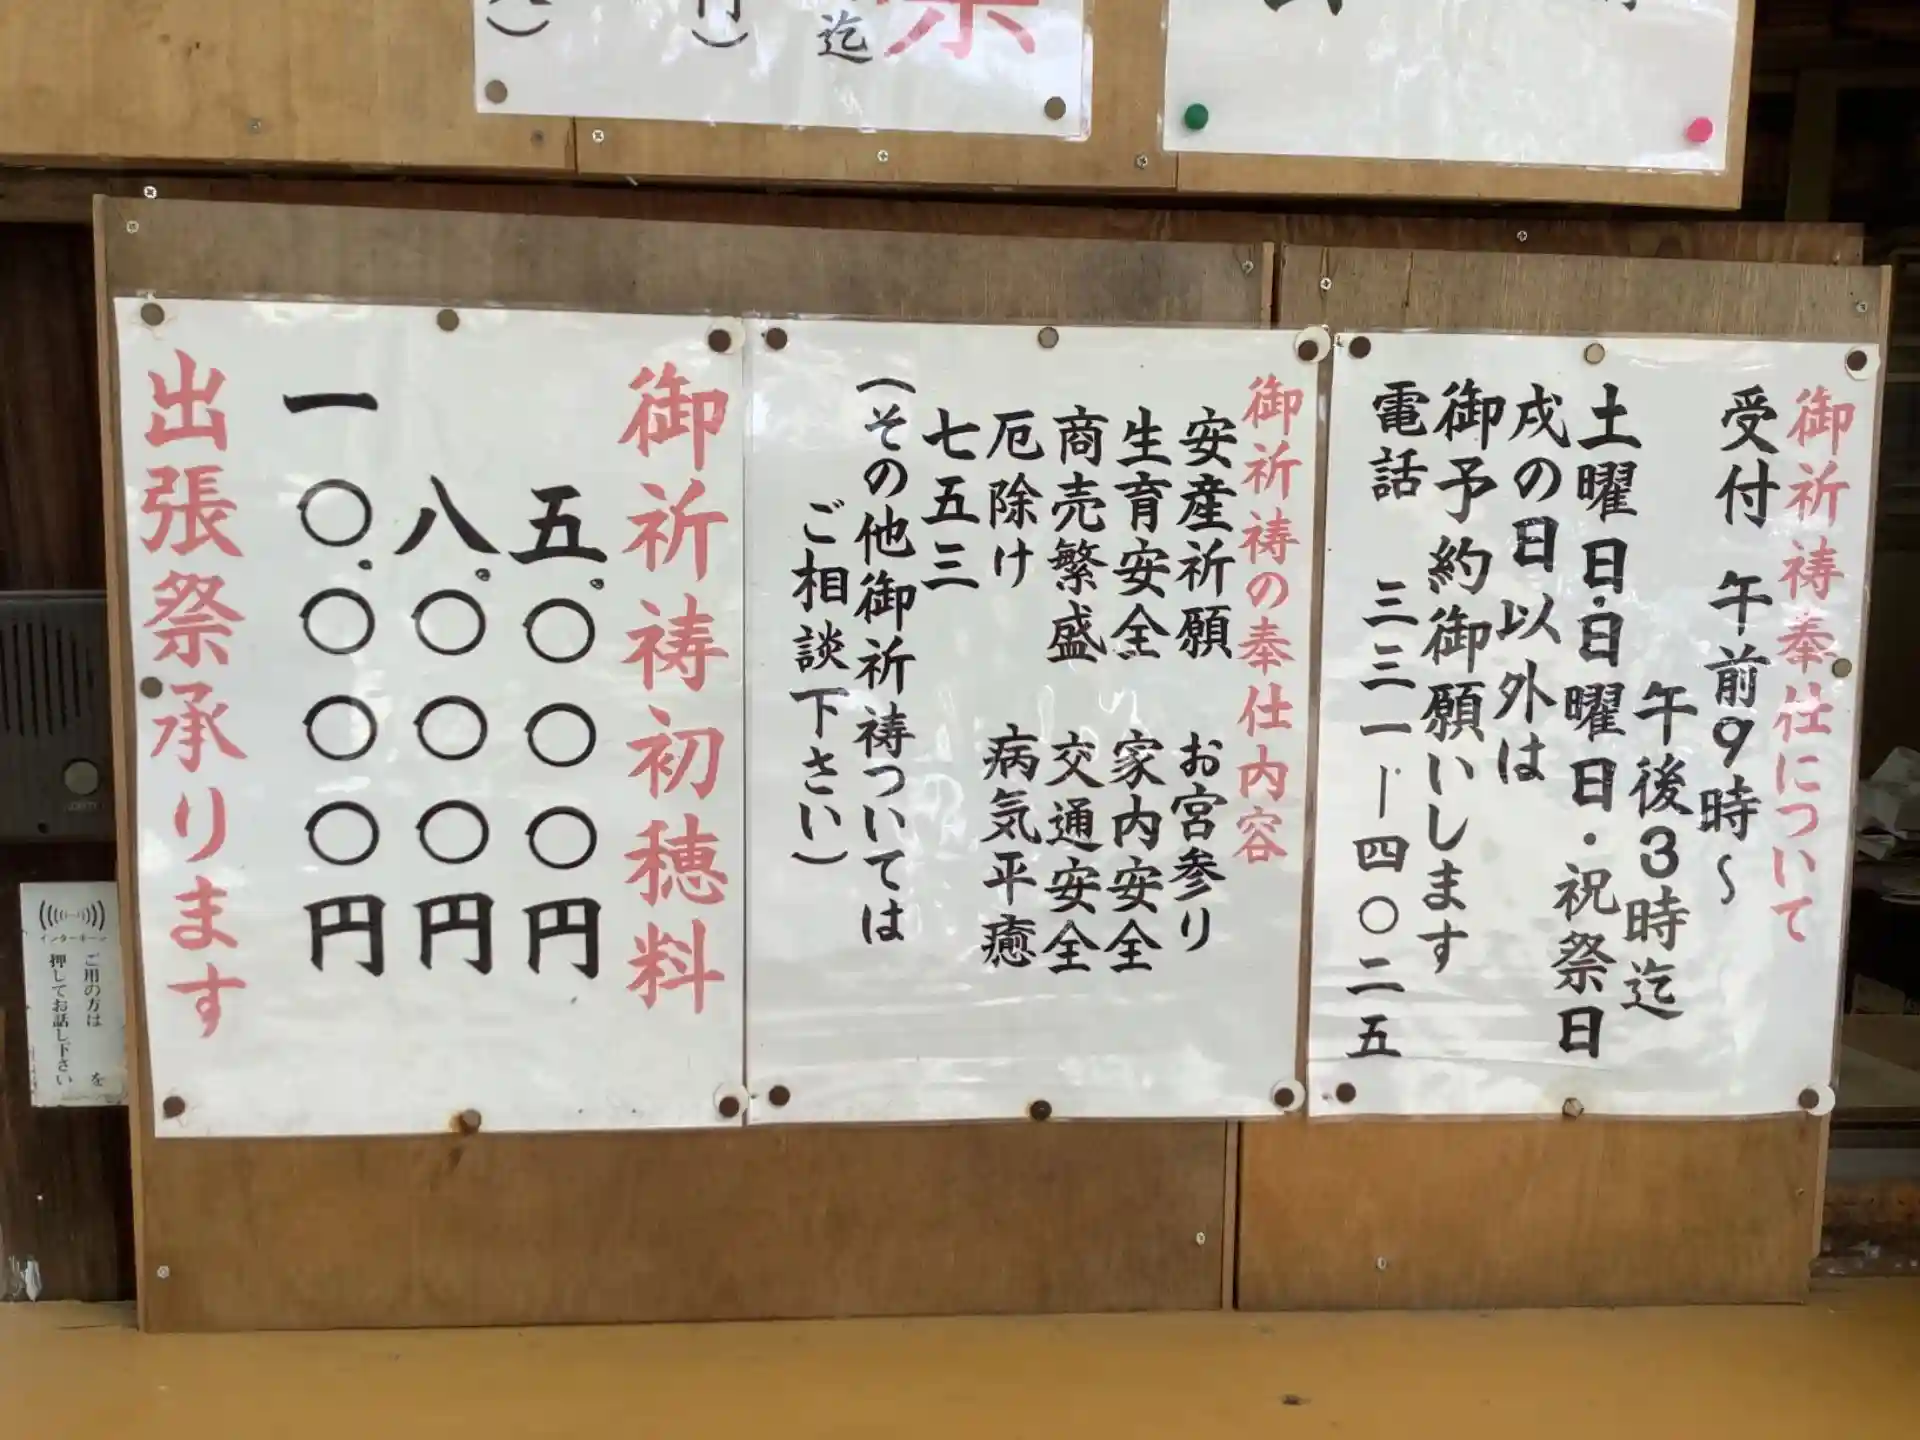 迄
祭
御祈祷奉仕について
受付 午前9時〜
午後3時迄
土曜日・日曜日・祝祭日
戌の日以外は
御予約御願いします
電話 三三一ー四〇二五
御祈祷の奉仕内容
安産祈願 お宮参り
生育安全 家内安全
商売繁盛 交通安全
厄除け 病気平癒
七五三
(その他御祈祷ついては
ご相談下さい)
御祈祷初穂料
五.〇〇〇円
八.〇〇〇円
一〇.〇〇〇円
出張祭承ります
インターホーン
ご用の方は を
押してお話し下さい